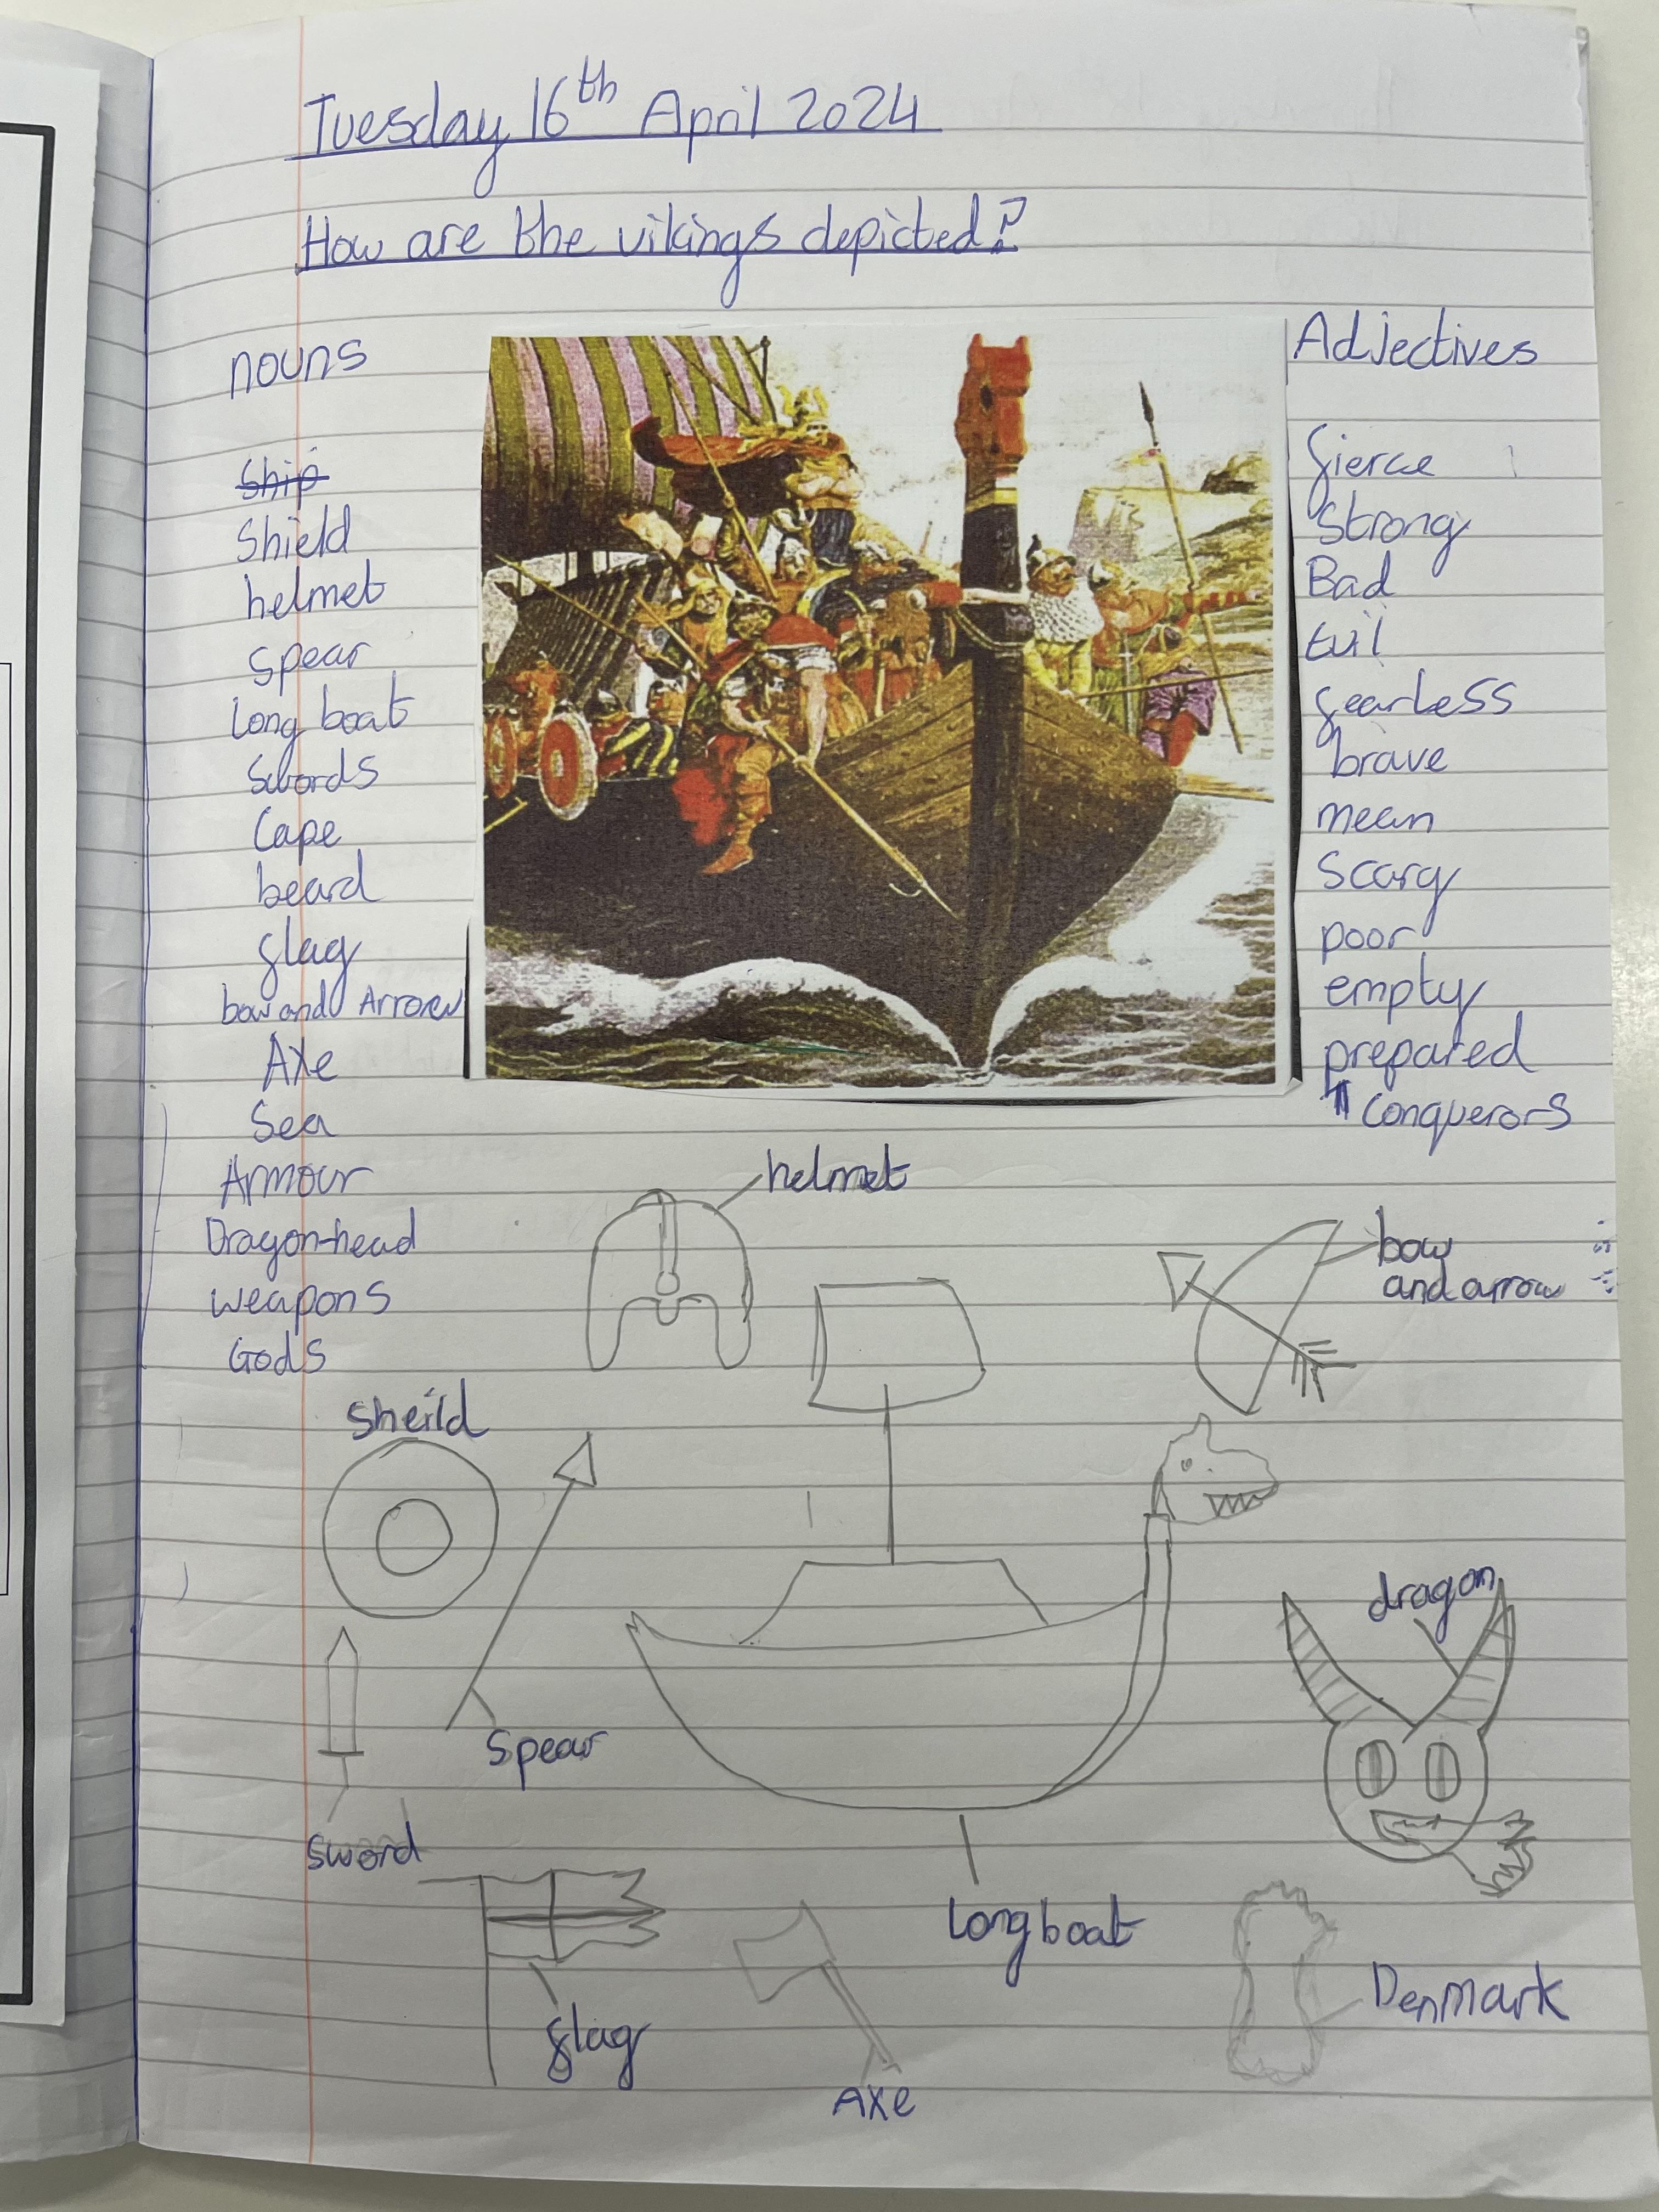 Tuesday 16th April 2024
How are the vikings depicted?
nouns
Ship
Shield
helmet
spear
long boat
Swords
Cape
beard
flag
bow and Arrow
Axe
Sea
Armour
Dragon-head
weapons
Gods
Adjectives
fierce
Strong
Bad
Evil
fearless
brave
mean
Scary
poor
empty
prepared
Conquerors
helmet
bow
and arrow
Sheild
dragon
Spear
Sword
long boat
flag
Denmark
Axe